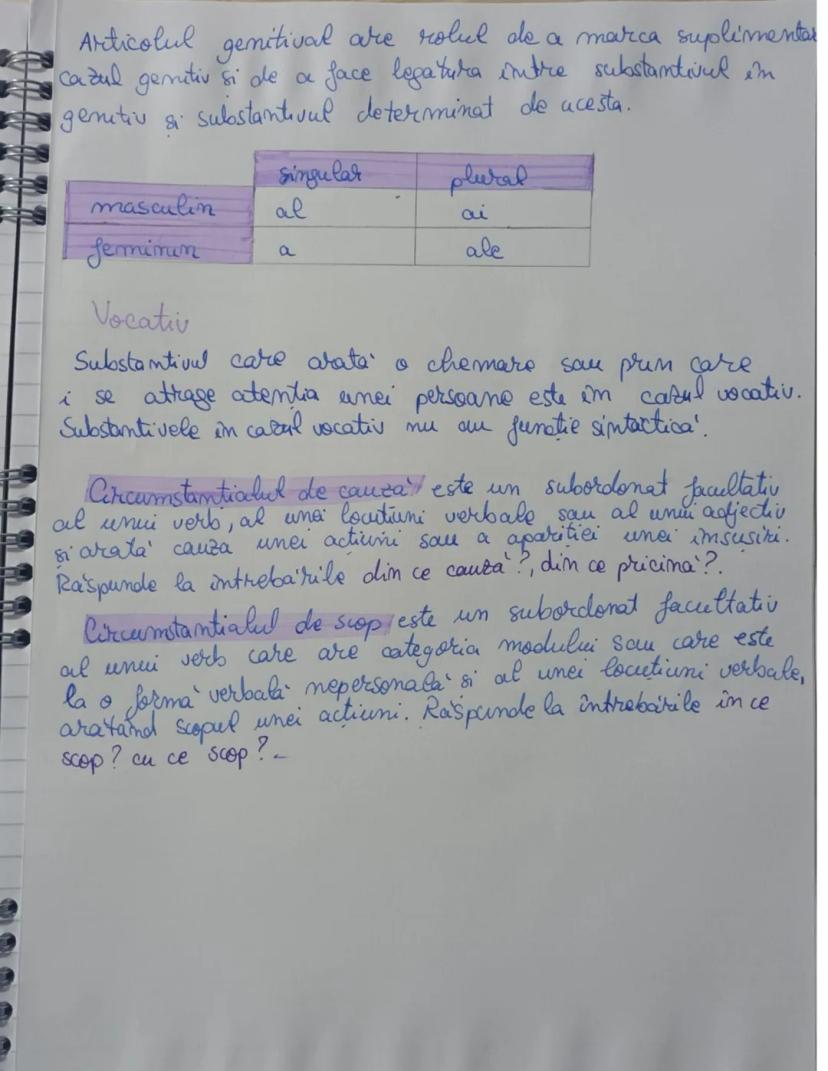 Articolul genitival are rolul de a marca suplimentar
cazul genitiv și de a face legătura între substantivul în
genitiv și substantivul determinat de acesta.
singular plural
masculin al ai
feminin a ale
Vocativ
Substantivul care arată o chemare sau prin care
i se atrage atenția unei persoane este în cazul vocativ.
Substantivele în cazul vocativ nu au funcție sintactică.
Circumstanțialul de cauză este un subordonat facultativ
al unui verb, al unei locuțiuni verbale sau al unui adjectiv
și arată cauza unei acțiuni sau a apariției unei însușiri.
Răspunde la întrebările din ce cauză?, din ce pricină?.
Circumstanțialul de scop este un subordonat facultativ
al unui verb care are categoria modului sau care este
la o formă verbală nepersonală și al unei locuțiuni verbale,
arătând scopul unei acțiuni. Răspunde la întrebările în ce
scop? cu ce scop?